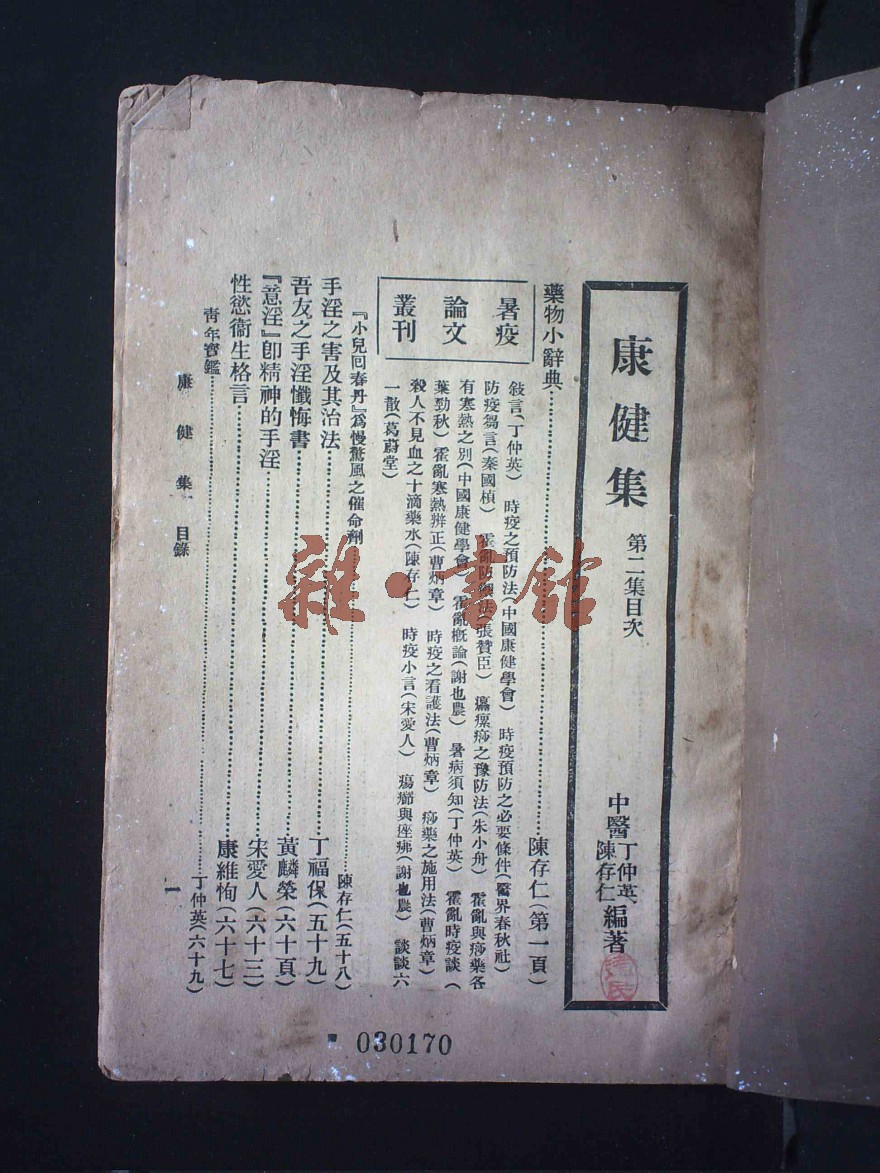 康健集 第二集目次
中醫丁仲英陳存仁編著
藥物小辭典……陳存仁(第一頁)
暑疫
論文
叢刊
敍言(丁仲英) 時疫之預防法(中國康健學會) 時疫預防之必要條件(醫界春秋社)
防疫芻言(秦國楨) 霍亂防禦法(張贊臣) 瘟瘰痧之豫防法(朱小舟) 霍亂與痧藥各
有寒熱之別(中國康健學會) 霍亂概論(謝也農) 暑病須知(丁仲英) 霍亂時疫談(
葉勁秋) 霍亂寒熱辨正(曹炳章) 時疫之看護法(曹炳章) 痧藥之施用法(曹炳章)
殺人不見血之十滴藥水(陳存仁) 時疫小言(宋愛人) 瘍癤與痤疿(謝也農) 談談六
一散(葛蔚堂)
『小兒回春丹』爲慢驚風之催命劑……陳存仁(五十八)
手淫之害及其治法……丁福保(五十九)
吾友之手淫懺悔書……黃麟榮(六十頁)
『意淫』卽精神的手淫……宋愛人(六十三)
性慾衞生格言……康維恂(六十七)
靑年寶鑑……丁仲英(六十九)
康健集 目錄
一
030170
雜·書館